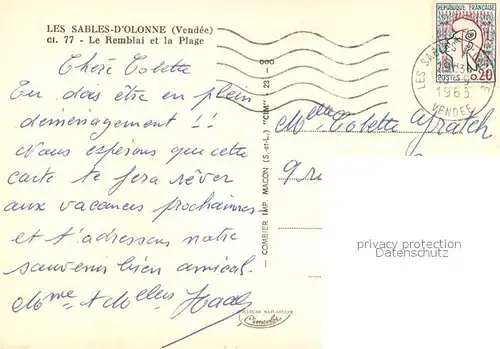 LES SABLES-D'OLONNE (Vendée)
CI. 77 - Le Remblai et la Plage
Chère Colette
Tu dois être en plein
déménagement !!
Nous espérons que cette
carte te fera rêver
aux vacances prochaines
et t'adressons notre
souvenir bien amical.
Mme et Melles
— COMBIER IMP. MACON (S.-et-L.) "CIM" — 23 -
REPUBLIQUE FRANÇAISE
POSTES 0,20
LES SABLES
1963
VENDEE
Melle Colette
9
privacy protection
Datenschutz
Cimcolor